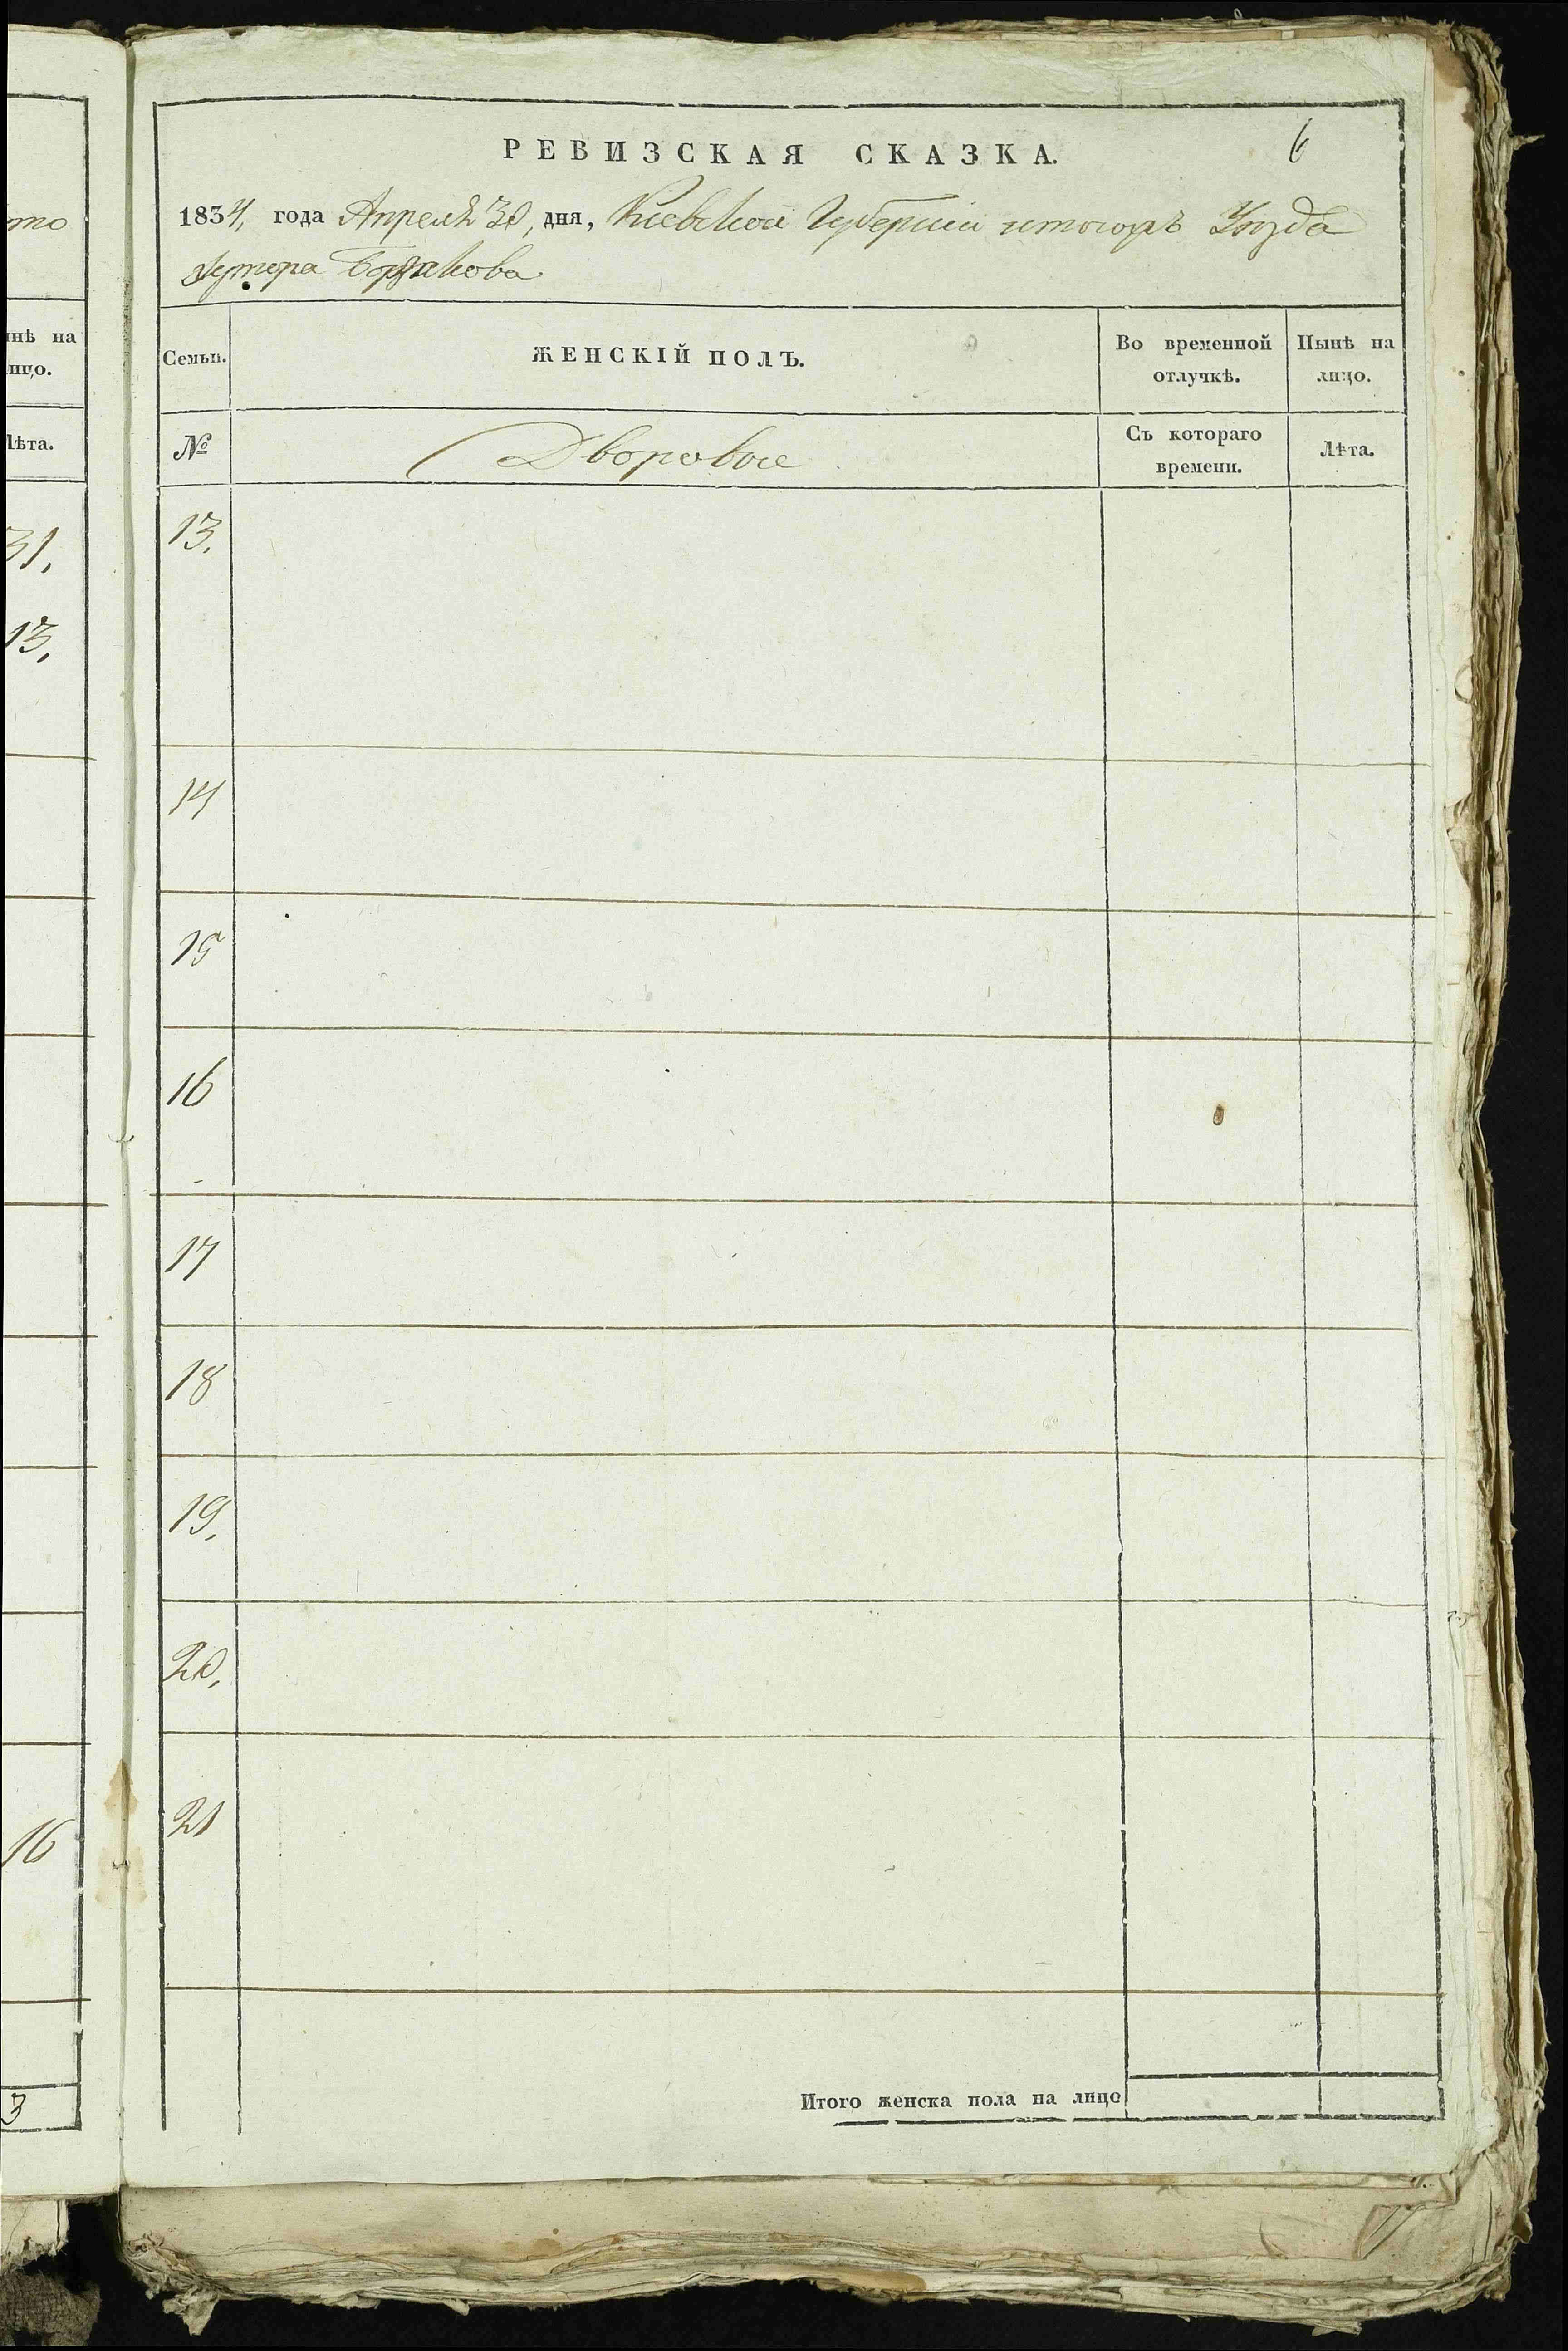 то
инѣ на
лицо.
Лѣта.
31,
13,
16
3
РЕВИЗСКАЯ СКАЗКА.
6
1834, года Апреля 30, дня, Кіевской Губерніи Уѣзда
хутора
Семьи.
ЖЕНСКІЙ ПОЛЪ.
Во временной
отлучкѣ.
Нынѣ на
лицо.
№
Дворовые
Съ котораго
времени.
Лѣта.
13.
14
15
16
17
18
19.
20.
21
Итого женска пола на лицо